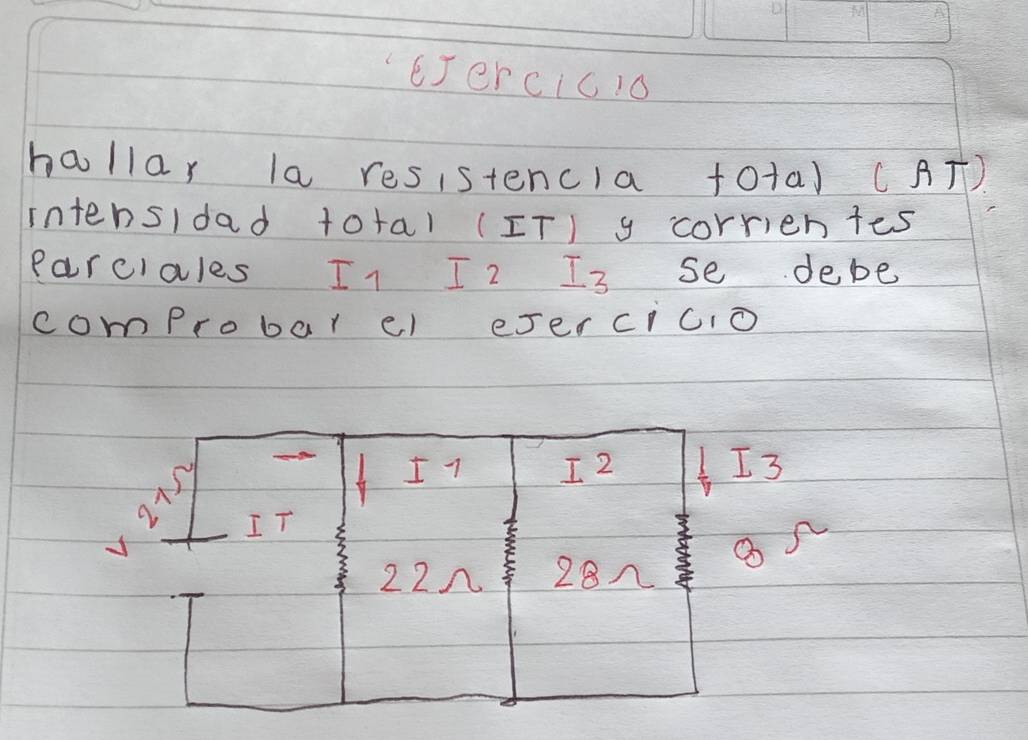 EJercicio
hallar la resistencia total (RT)
intensidad total (IT) y corrientes
Parciales I1 I2 I3 se debe
comProbar el eJercicio
I1 I2 I3
V 21Ω IT
22Ω 28Ω 8Ω